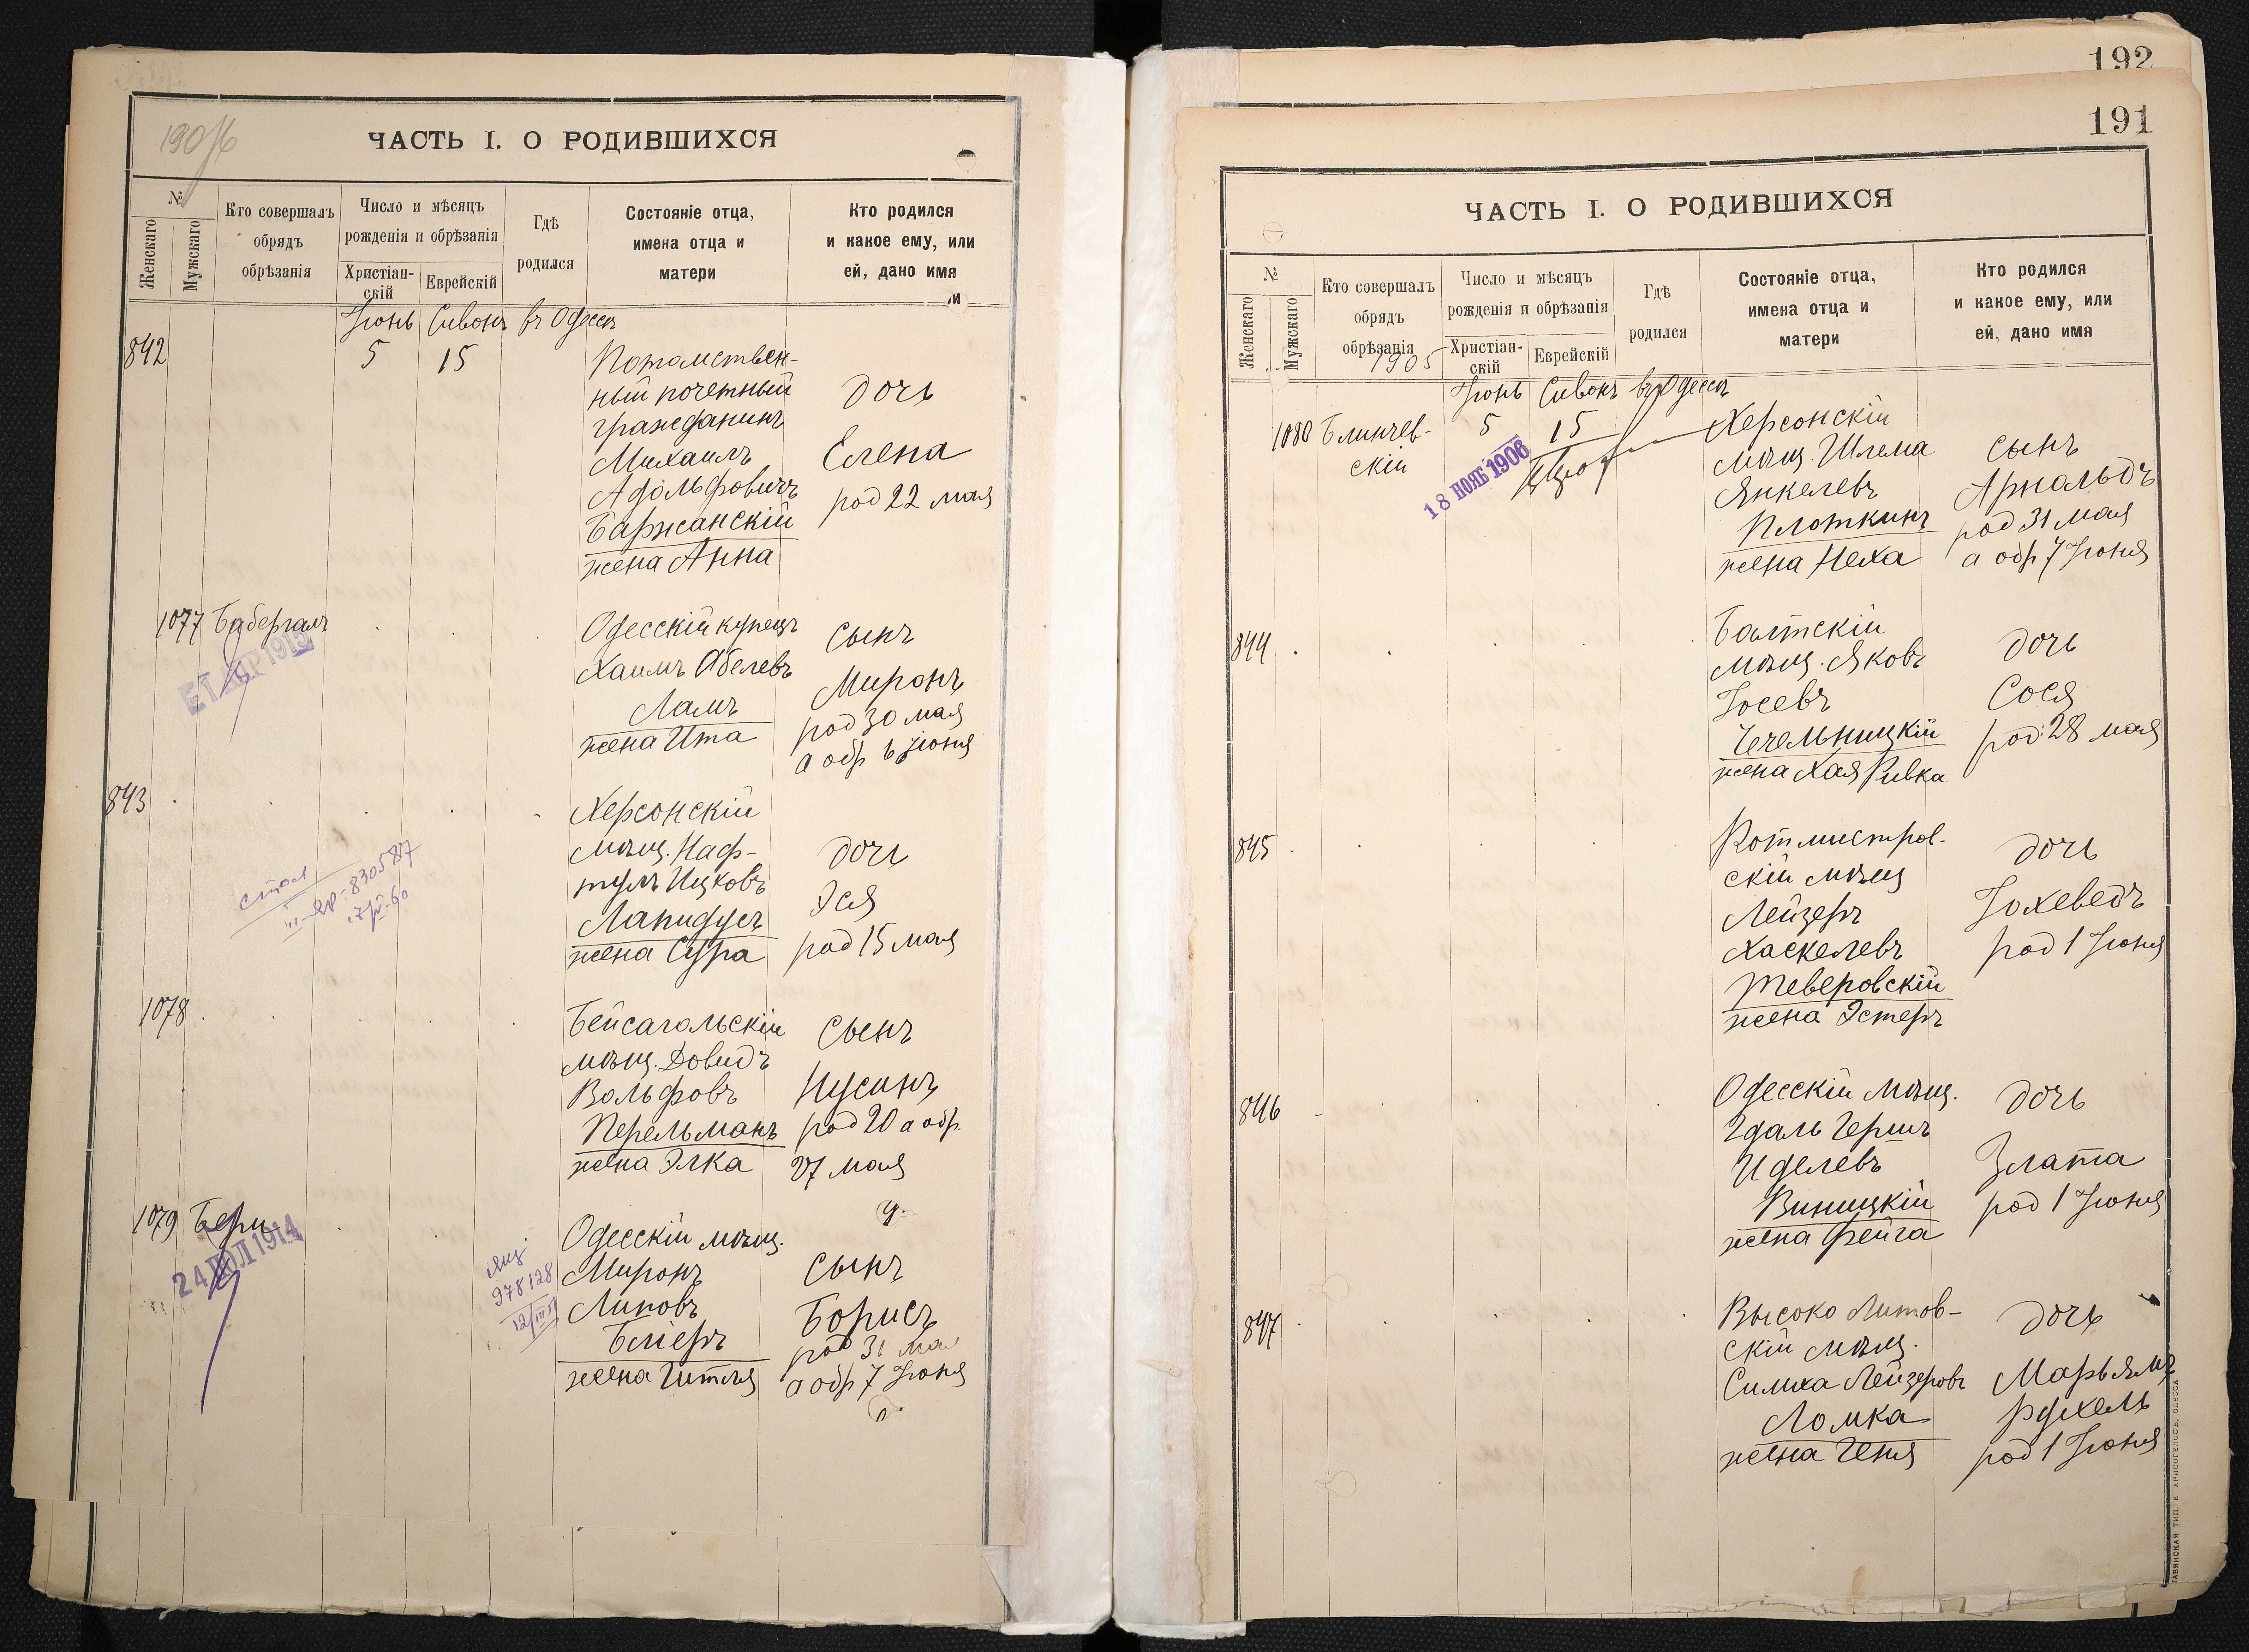 ЧАСТЬ I. О РОДИВШИХСЯ
№
Женскаго
Мужскаго
Кто совершалъ
обрядъ
обрѣзанія
Число и мѣсяцъ
рожденія и обрѣзанія
Христіан-
скій
Еврейскій
Гдѣ
родился
Состояніе отца,
имена отца и
матери
Кто родился
и какое ему, или
ей, дано имя
Іюнь Сивонъ въ Одессѣ
842
5 15
Потомствен-
ный почетный
гражданинъ
Михаилъ
Адольфовичъ
Баржанскій
жена Анна
дочь
Елена
род 22 мая
1077
Одесскій купецъ
Хаимъ Абелевъ
Ламъ
жена Ита
сынъ
Миронъ
род 30 мая
а обр 6 Іюня
843
Херсонскій
мѣщ. Наф-
тулъ Ицковъ
Лапидусъ
жена Сура
дочь
Эся
род 15 мая
830587
1078
Бейсагольскій
мѣщ. Довидъ
Вольфовъ
Перельманъ
жена Элка
сынъ
Нусинъ
род 20 а обр.
27 мая
1079
24 ІЮЛ 1914
978128
Одесскій мѣщ.
Миронъ
Липовъ
Бліеръ
жена Гитля
сынъ
Борисъ
род 31 ма
а обр 7 Іюня
192
191
ЧАСТЬ I. О РОДИВШИХСЯ
№
Женскаго
Мужскаго
Кто совершалъ
обрядъ
обрѣзанія
1905
Число и мѣсяцъ
рожденія и обрѣзанія
Христіан-
скій
Еврейскій
Гдѣ
родился
Состояніе отца,
имена отца и
матери
Кто родился
и какое ему, или
ей, дано имя
Іюнь Сивонъ въ Одессѣ
1080 Блинчев-
скій
5 15
18 НОЯБ 1906
Херсонскій
мѣщ. Шлема
Янкелевъ
Плоткинъ
жена Неха
сынъ
Арнальдъ
род 31 мая
а обр 7 Іюня
844
Балтскій
мѣщ. Яковъ
Іосевъ
Чечельницкій
жена Хая Ривка
дочь
Сося
род. 28 мая
845
Ротмистров-
скій мѣщ
Лейзеръ
Хаскелевъ
Тверовскій
жена Эстеръ
дочь
Іохеведъ
род 1 Іюня
846
Одесскій мѣщ.
Гдаль Гершъ
Иделевъ
Виницкій
жена Фейга
дочь
Злата
род 1 Іюня
847
Высоко Литов-
скій мѣщ.
Симха Лейзеровъ
Ломка
жена Геня
дочь
Марьямъ
Рухель
род 1 Іюня